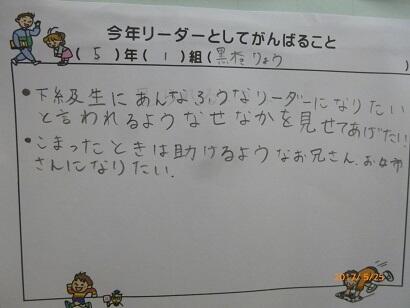 今年リーダーとしてがんばること
(5)年(1)組(黒檜りょう)
•下級生にあんなふうなリーダーになりたい
と言われるようなせなかを見せてあげたい
•こまったときは助けるようなお兄さん、お姉
さんになりたい.
2017/5/25